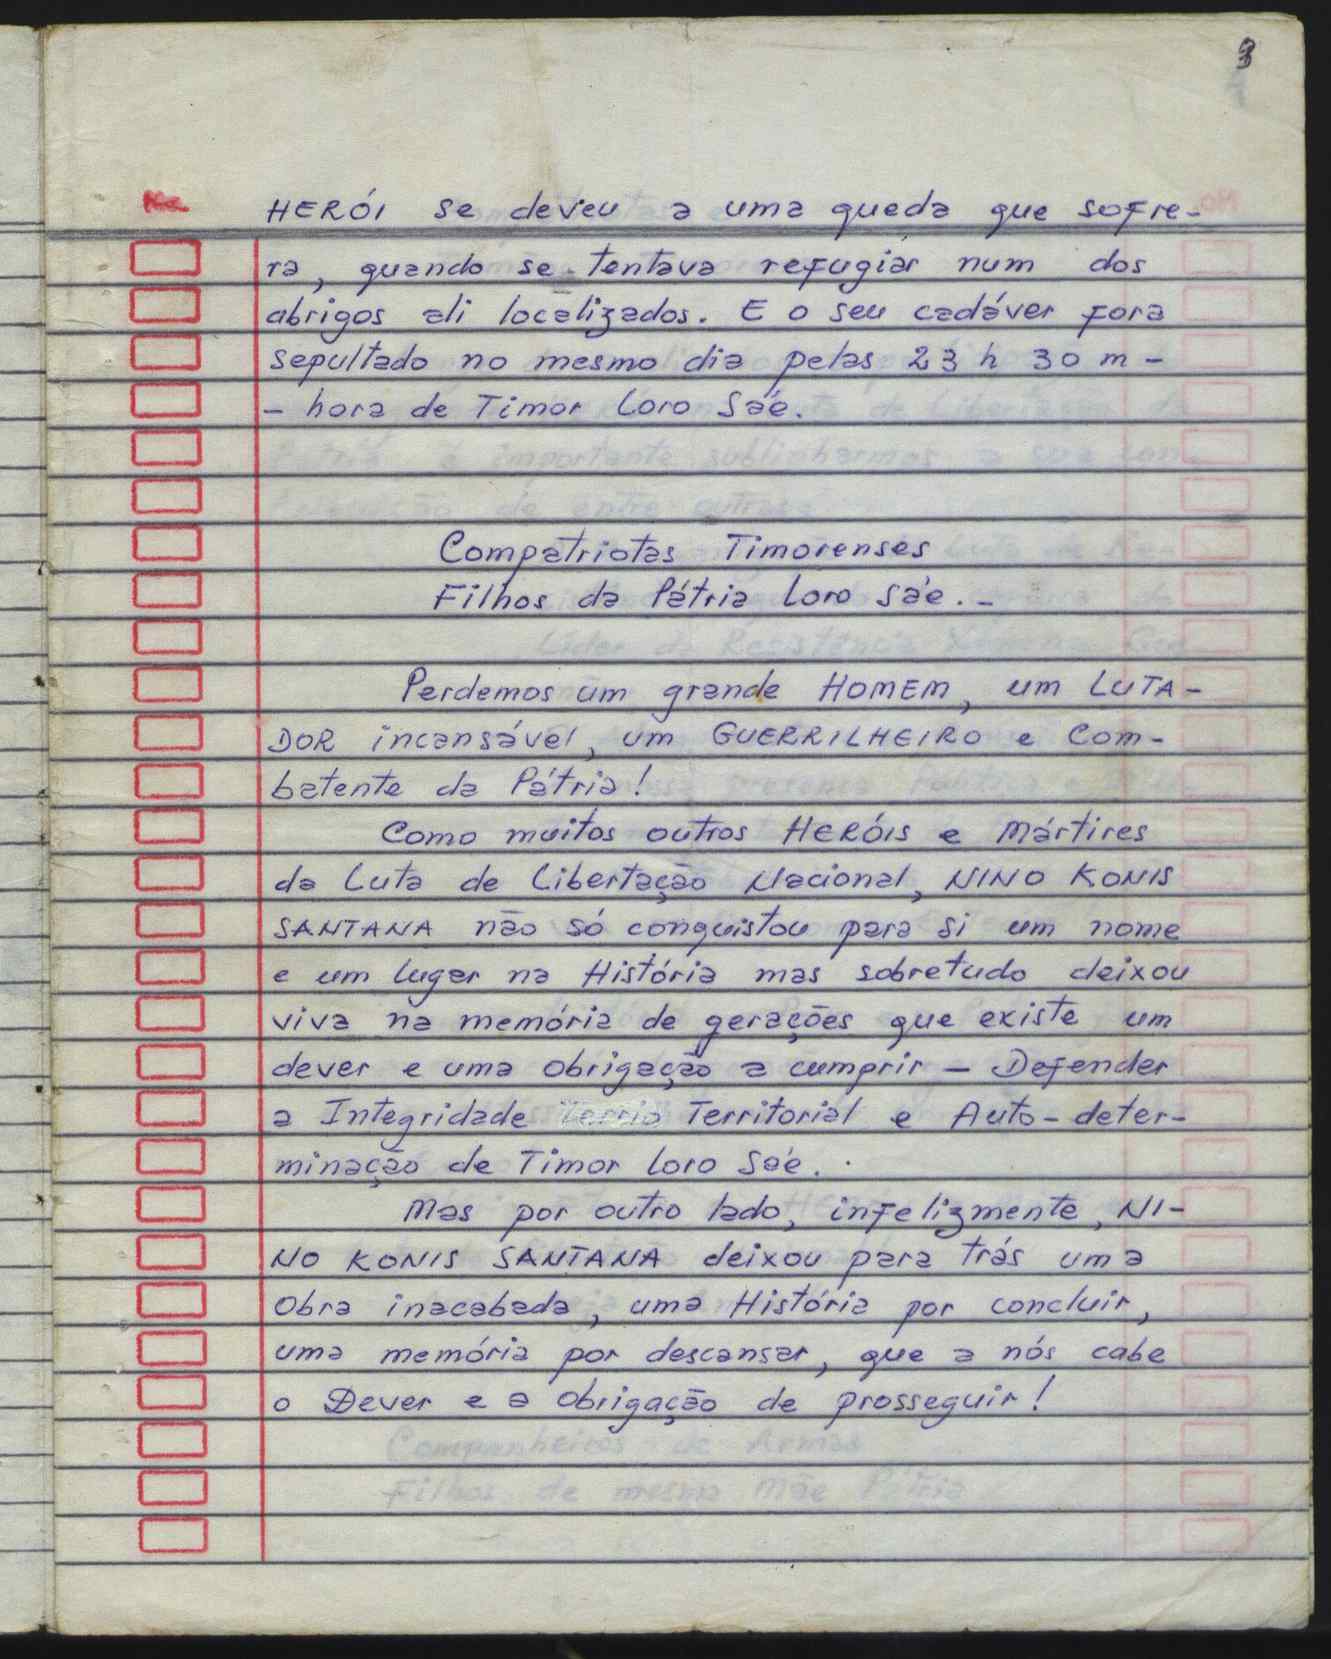 3
No
HERÓI se deveu a uma queda que sofre-
ra, quando se tentava refugiar num dos
abrigos ali localizados. E o seu cadáver fora
sepultado no mesmo dia pelas 23 h 30 m -
- hora de Timor Loro Sáe.
Compatriotas Timorenses
Filhos da Pátria Loro Sáe. -
Perdemos um grande HOMEM, um LUTA-
DOR incansável, um GUERRILHEIRO e Com-
batente da Pátria!
Como muitos outros HERÓIS e Mártires
da Luta de Libertação Nacional, NINO KONIS
SANTANA não só conquistou para si um nome
e um lugar na História mas sobretudo deixou
viva na memória de gerações que existe um
dever e uma obrigação a cumprir - Defender
a Integridade Territorial e Auto-deter-
minação de Timor Loro Sáe.
Mas por outro lado, infelizmente, NI-
NO KONIS SANTANA deixou para trás uma
Obra inacabada, uma História por concluir,
uma memória por descansar, que a nós cabe
o Dever e a Obrigação de prosseguir!